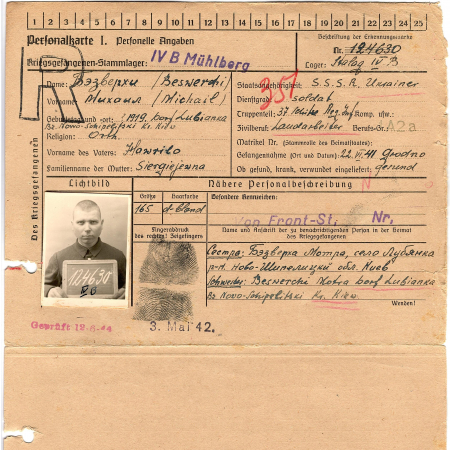 1 2 3 4 5 6 7 8 9 10 11 12 13 14 15 16 17 18 19 20 21 22 23 24 25
Personalkarte I: Personelle Angaben
Beschriftung der Erkennungsmarke
Nr. 124630
Kriegsgefangenen-Stammlager: IV B Mühlberg
Lager: Stalag IV B
R
Des Kriegsgefangenen
Name: Бэзверхи (Beswerchi)
Staatsangehörigkeit: S.S.S.R. Ukrainer
Vorname: Михаил (Michail)
357
Dienstgrad: soldat
Truppenteil: 37 Schütz. Reg. Inf Komp. usw.:
Geburtstag und -ort: 1919, Dorf Lubianka
Kr. Kiew
Zivilberuf: Landarbeiter Berufs-Gr. A2a
Religion: Orth.
Matrikel Nr. (Stammrolle des Heimatstaates):
Vorname des Vaters: Hawrilo
Gefangennahme (Ort und Datum): 22.VI.41 Grodno
Familienname der Mutter: Siergiejewna
Ob gesund, krank, verwundet eingeliefert: gesund
Lichtbild
Nähere Personalbeschreibung
N
Größe
Haarfarbe
Besondere Kennzeichen:
165
d-blond
von Front-St. Nr.
Fingerabdruck
des rechten Zeigefingers
Name und Anschrift der zu benachrichtigenden Person in der Heimat
des Kriegsgefangenen
124630
Сестра: Бэзверха Мотра, село Лубянка
р-н Ново-Шипелицкий обл. Киев
Schwester: Beswerchi Motra Dorf Lubianka
Kr. Kiew
Wenden!
Geprüft
3. Mai 42.